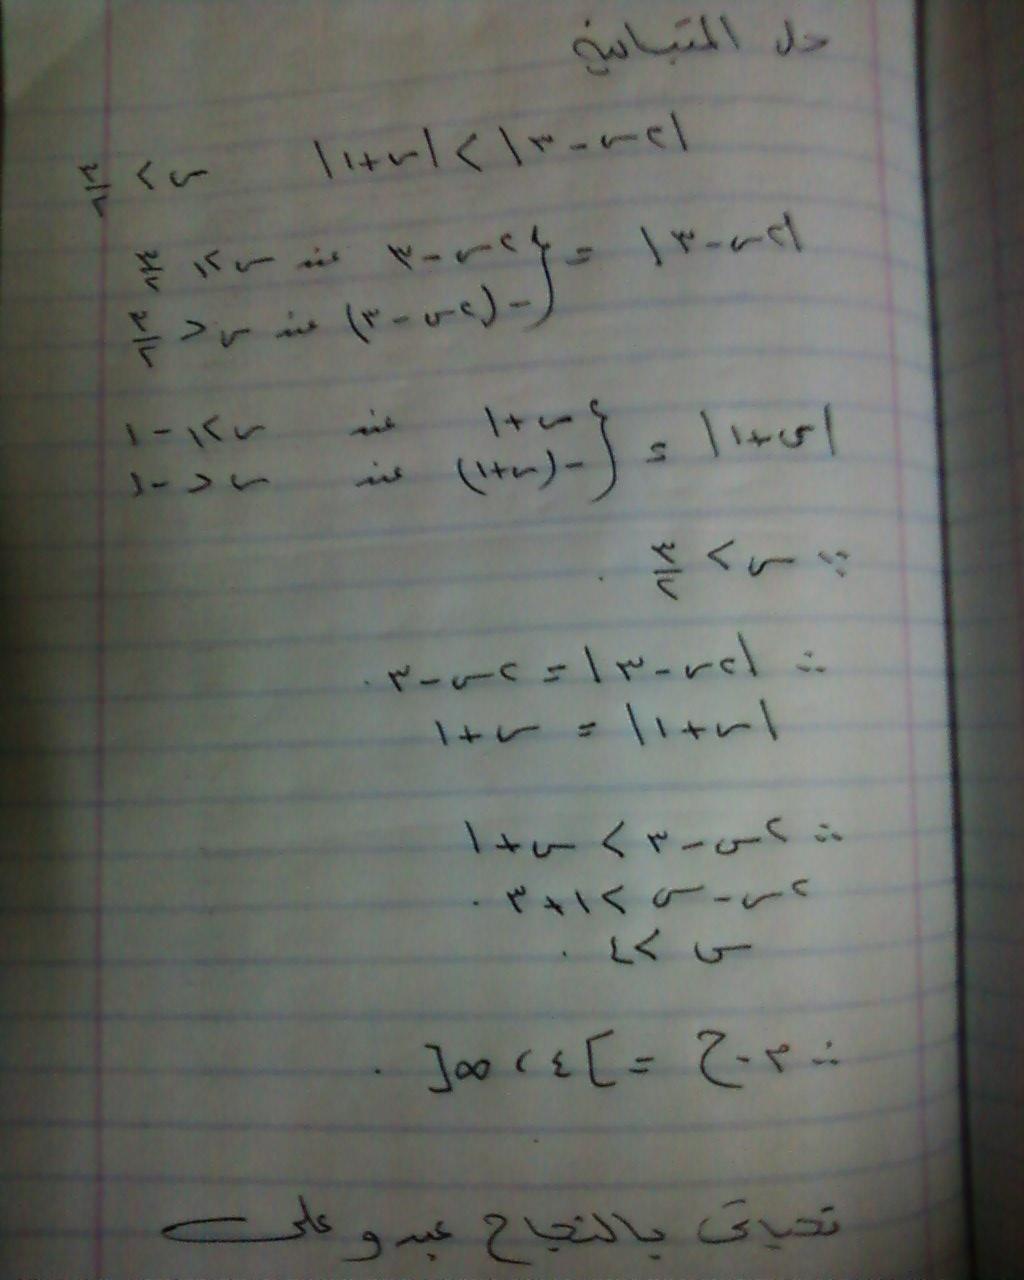 حل المتباينة
|٢س - ٣| > |س + ١|   س > ٣/٢
|٢س - ٣| = { ٢س - ٣ عند س ≥ ٣/٢
-(٢س - ٣) عند س < ٣/٢
|س + ١| = { س + ١ عند س ≥ -١
-(س + ١) عند س < -١
∵ س > ٣/٢
∴ |٢س - ٣| = ٢س - ٣
|س + ١| = س + ١
∴ ٢س - ٣ > س + ١
٢س - س > ١ + ٣
س > ٤
∴ م.ح = ]٤ ، ∞[
تحياتى بالنجاح عبدو على